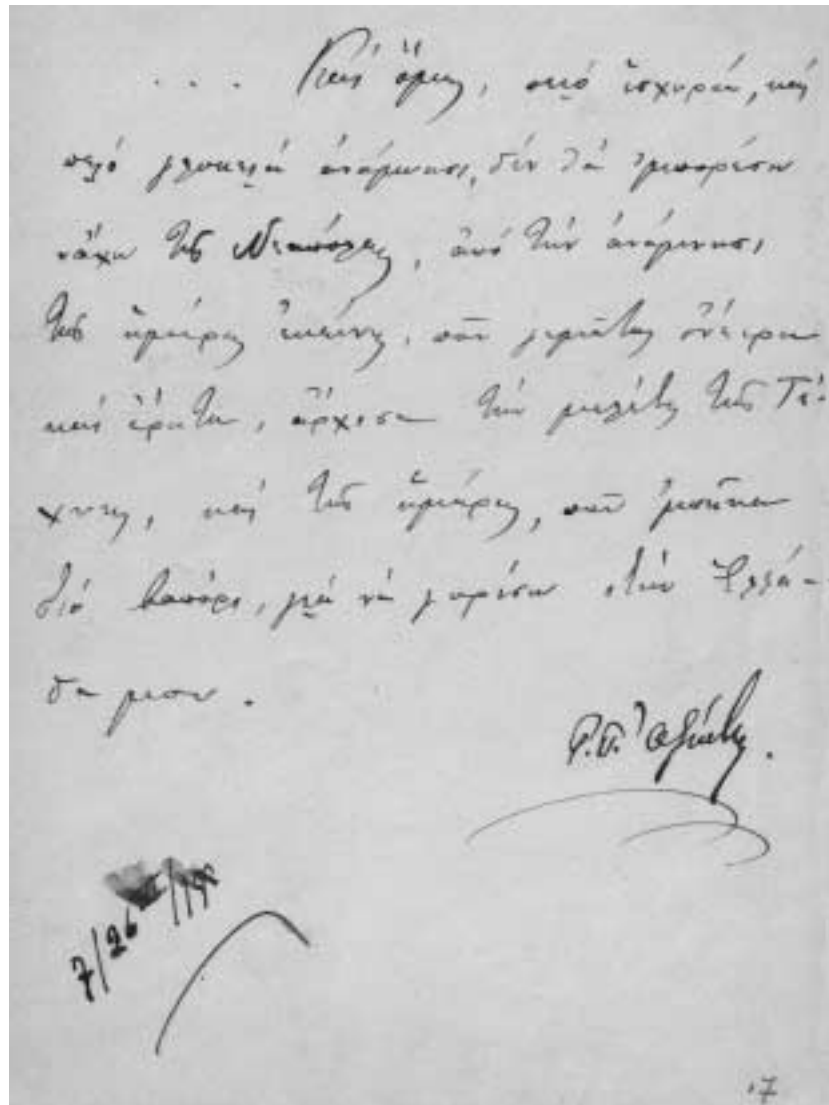 ... Καὶ ὅμως, πειὸ ἰσχυρά, καὶ
πειὸ γλυκειὰ ἀνάμνησι, δὲν θὰ ἠμπορέσω
νἄχω τῆς Νεαπόλεως, ἀπὸ τὴν ἀνάμνησι
τῆς ἡμέρας ἐκείνης, ποῦ γεμᾶτος ὄνειρα
καὶ ἔρωτα, ἄρχισα τὴν μελέτη τῆς Τέ-
χνης, καὶ τῆς ἡμέρας, ποῦ ἐμπῆκα
στὸ βαπόρι, γιὰ νὰ γυρίσω στὴν Ἑλλά-
δα μου.
7/26
17